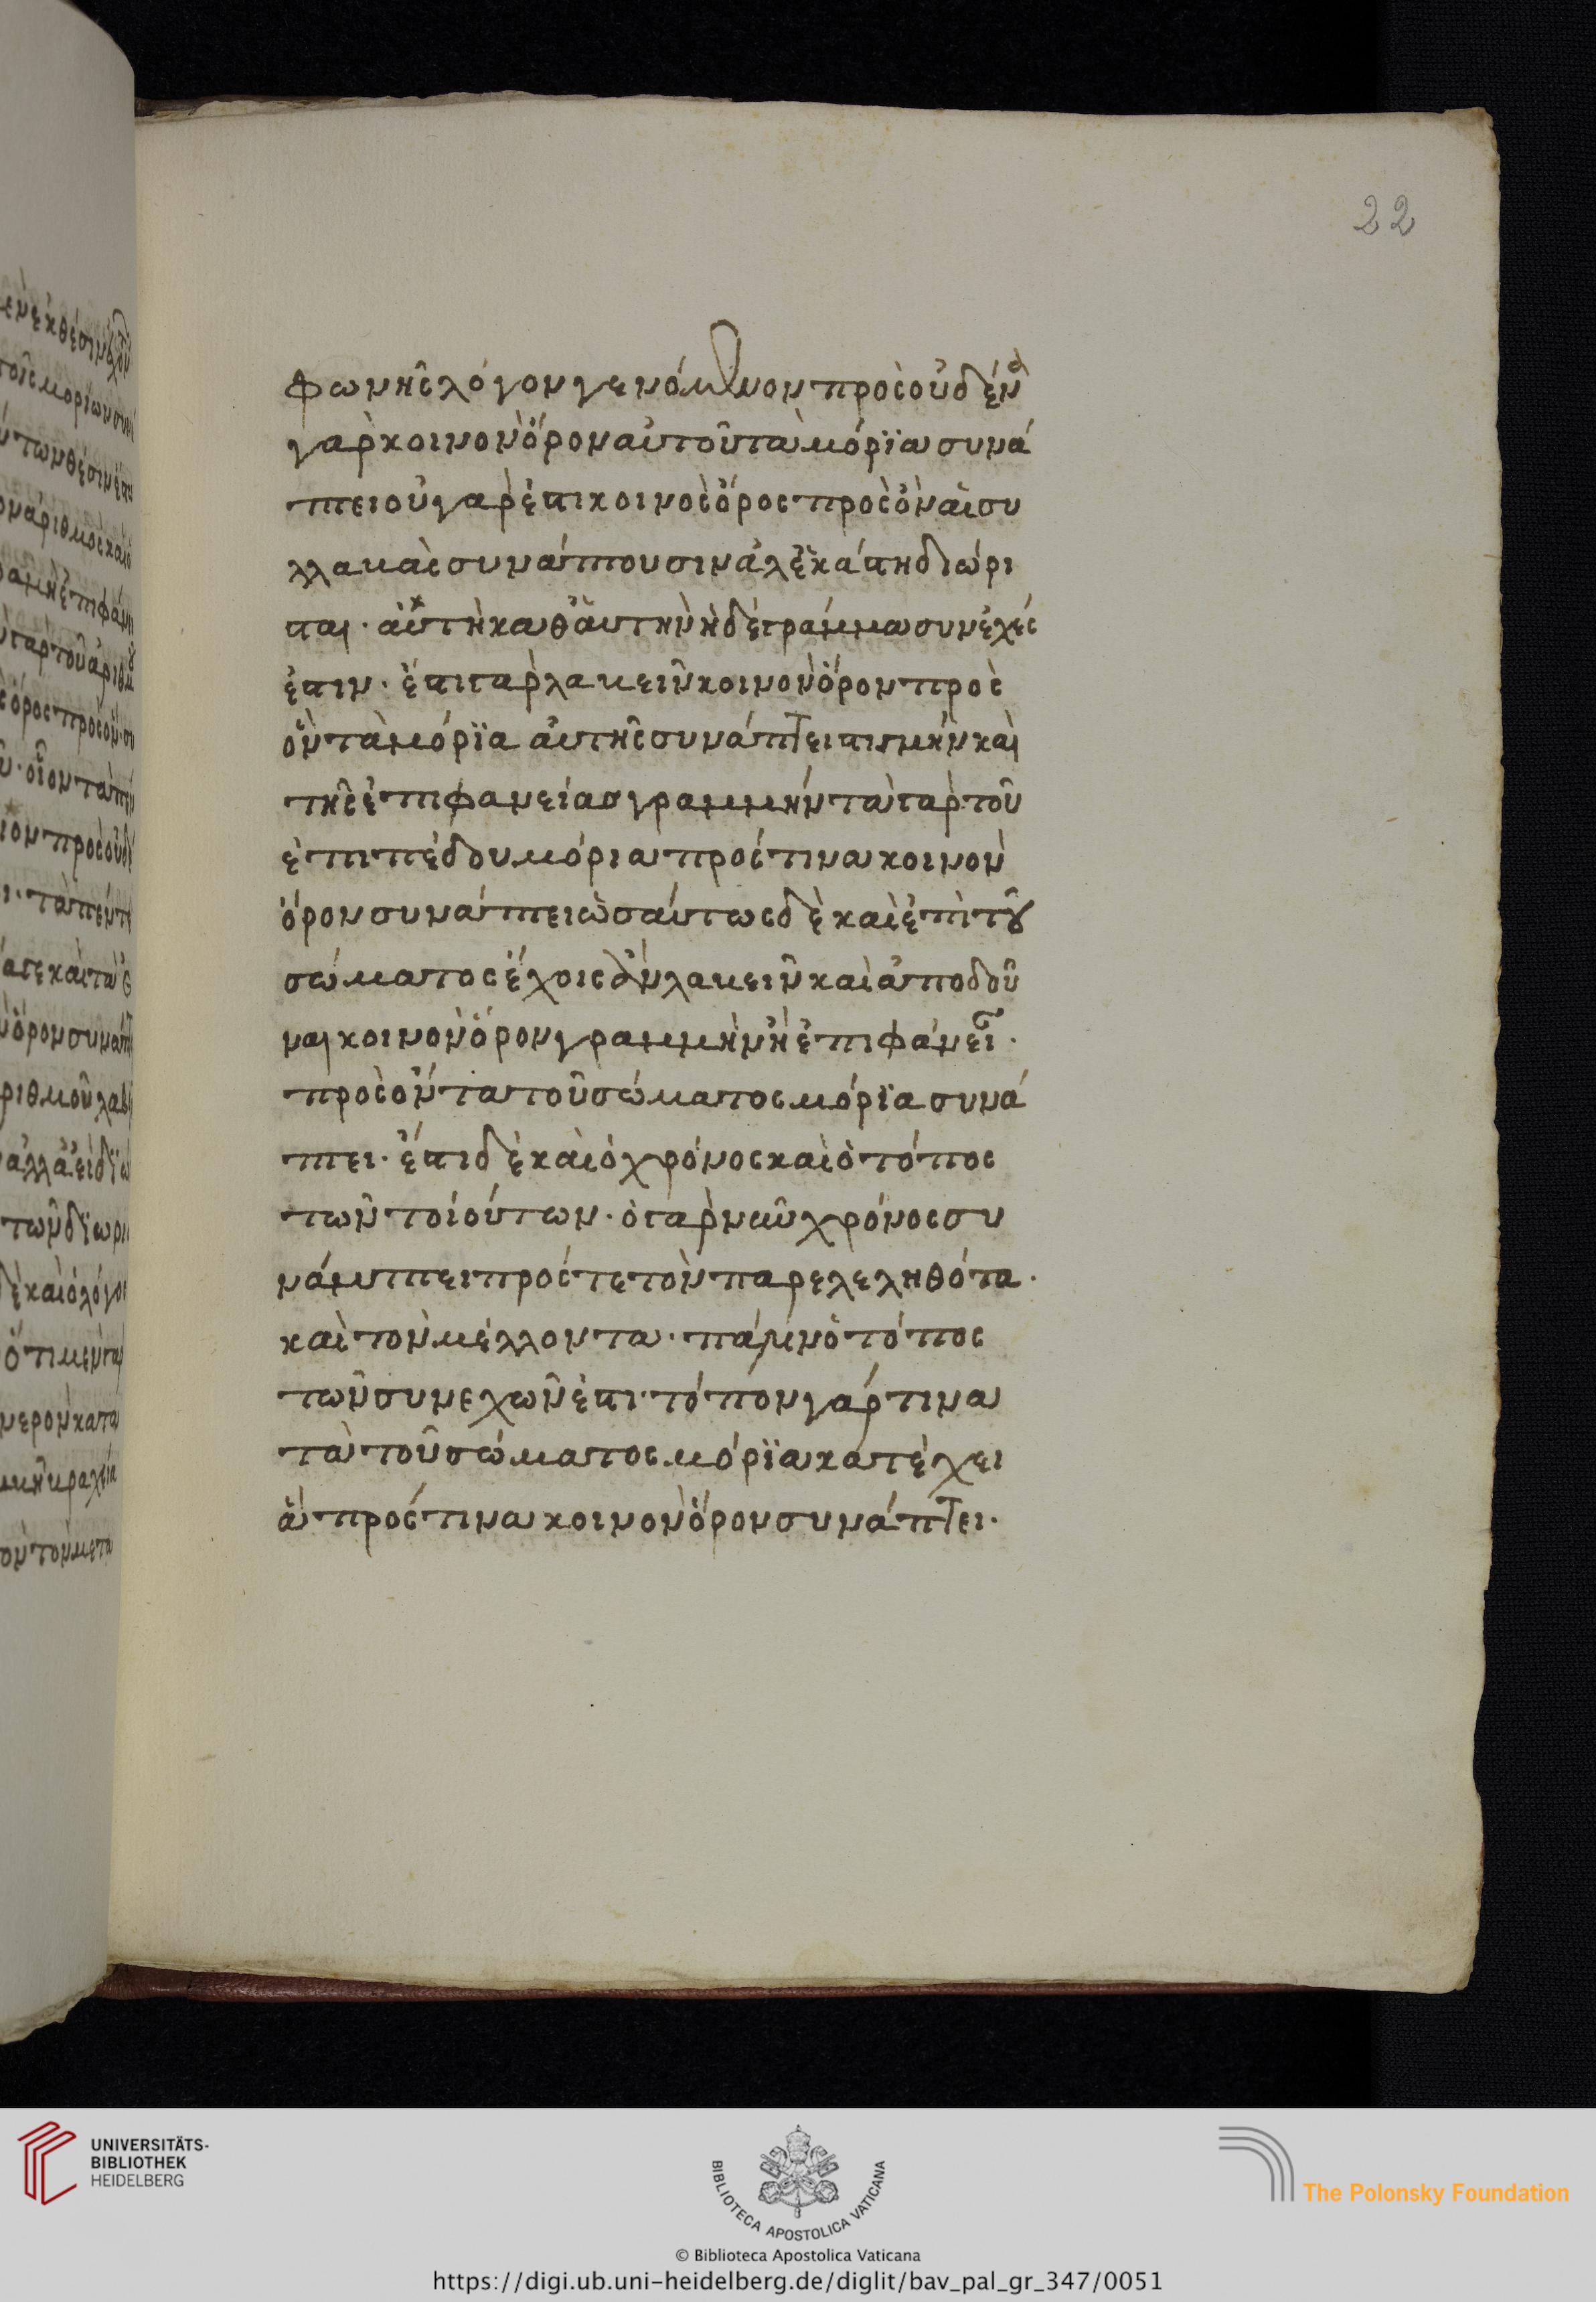 22
φωνῆς λόγον γενόμενον πρὸς οὐδένα
γὰρ κοινὸν ὅρον αὐτοῦ τὰ μόρϊα συνά
πτει οὐ γάρ ἐστι κοινὸς ὅρος πρὸς ὃν αἱ συ
λλαβαὶ συνάπτουσιν ἀλλ' ἑκάστη διώρι
σται· αὐτὴ καθ' ἁυτήν ἡ δὲ γραμμὴ συνεχές
ἐστιν· ἔστι γὰρ λαβεῖν κοινὸν ὅρον πρὸς
ὃν τὰ μόρϊα αὐτῆς συνάπτει στιγμήν καὶ
τῆς ἐπιφανείας γραμμήν τὰ γὰρ τοῦ
ἐπιπέδου μόρια πρός τινα κοινὸν
ὅρον συνάπτει ὡσαύτως δὲ καὶ ἐπὶ τοῦ
σώματος ἔχοις ἂν λαβεῖν καὶ ἀποδοῦ
ναι κοινὸν ὅρον γραμμὴν ἢ ἐπιφάνειαν·
πρὸς ὃν τα τοῦ σώματος μόρϊα συνά
πτει· ἔστι δὲ καὶ ὁ χρόνος καὶ ὁ τόπος
τῶν τοιούτων· ὁ γὰρ νῦν χρόνος συ
νάπτει πρός τε τὸν παρεληλυθότα·
καὶ τὸν μέλλοντα· πάλιν ὁ τόπος
τῶν συνεχῶν ἐστι· τόπον γάρ τινα
τὰ τοῦ σώματος μόρϊα κατέχει
ἃ πρός τινα κοινὸν ὅρον συνάπτει·
UNIVERSITÄTS-
BIBLIOTHEK
HEIDELBERG
BIBLIOTECA APOSTOLICA VATICANA
The Polonsky Foundation
© Biblioteca Apostolica Vaticana
https://digi.ub.uni-heidelberg.de/diglit/bav_pal_gr_347/0051